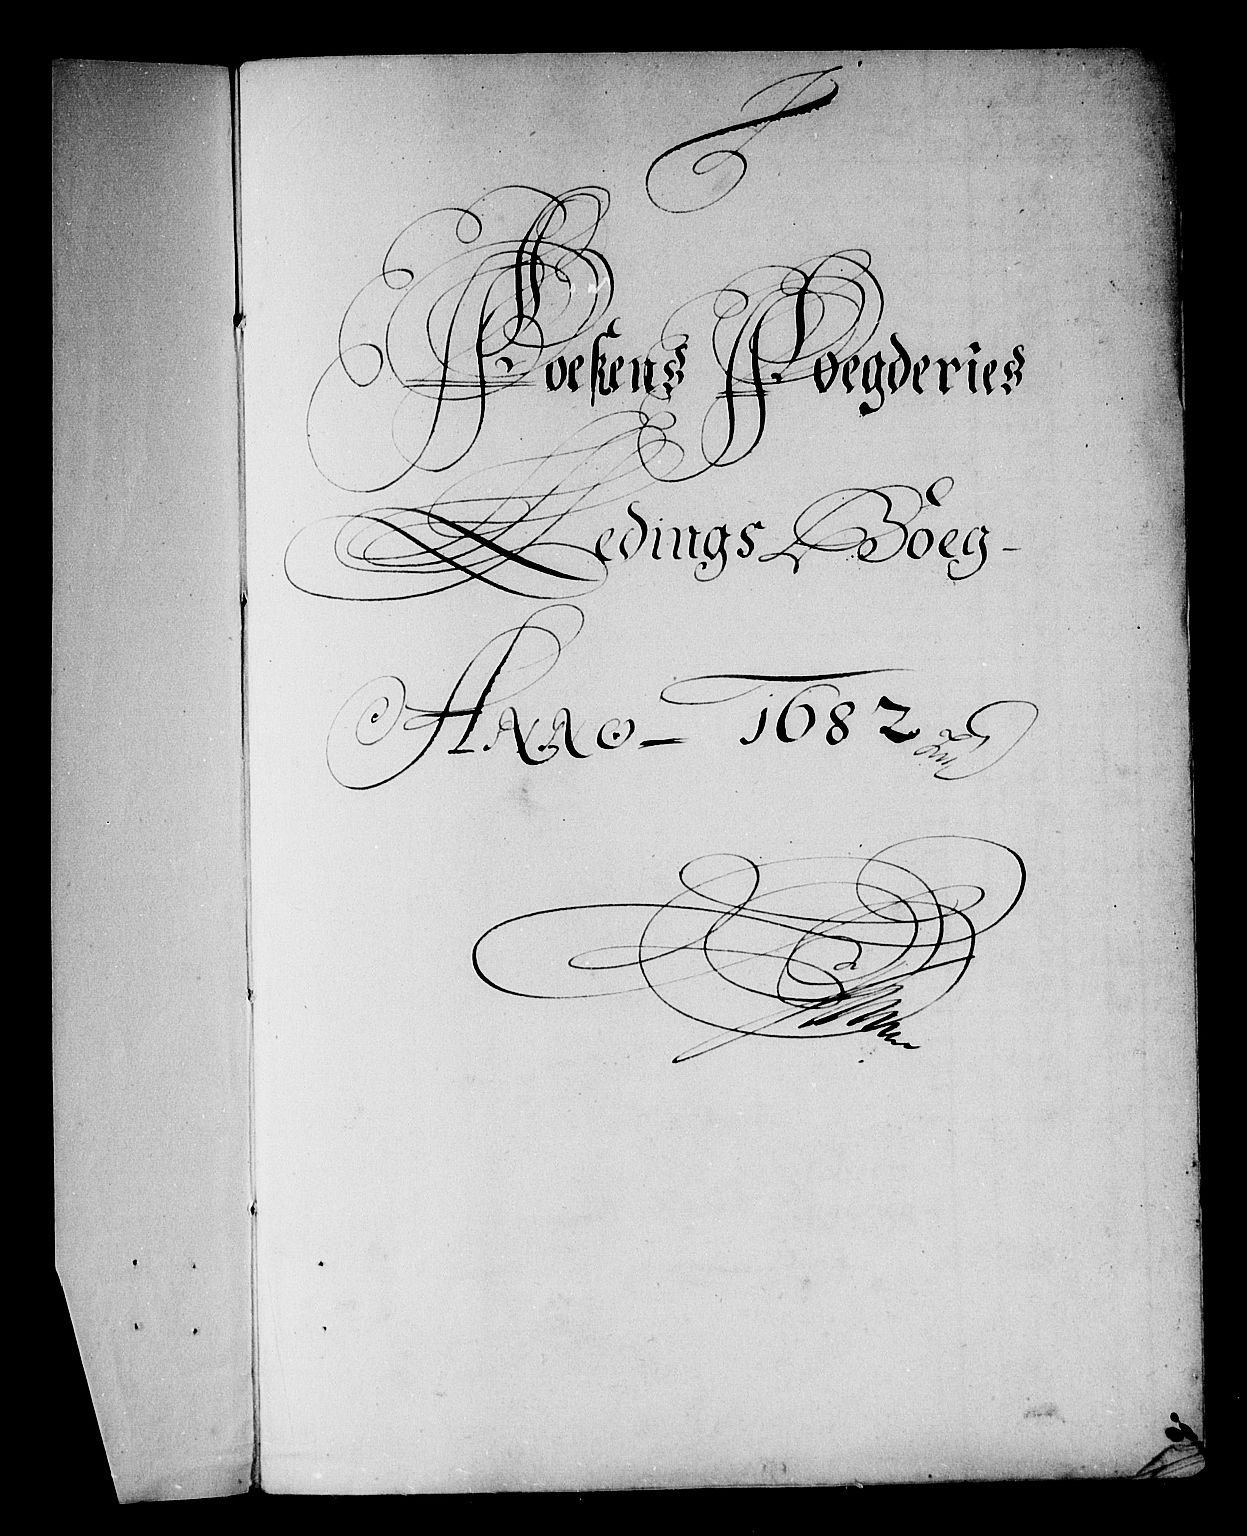 Foeßens Foegderies
Ledings Böeg -
Anno - 1682